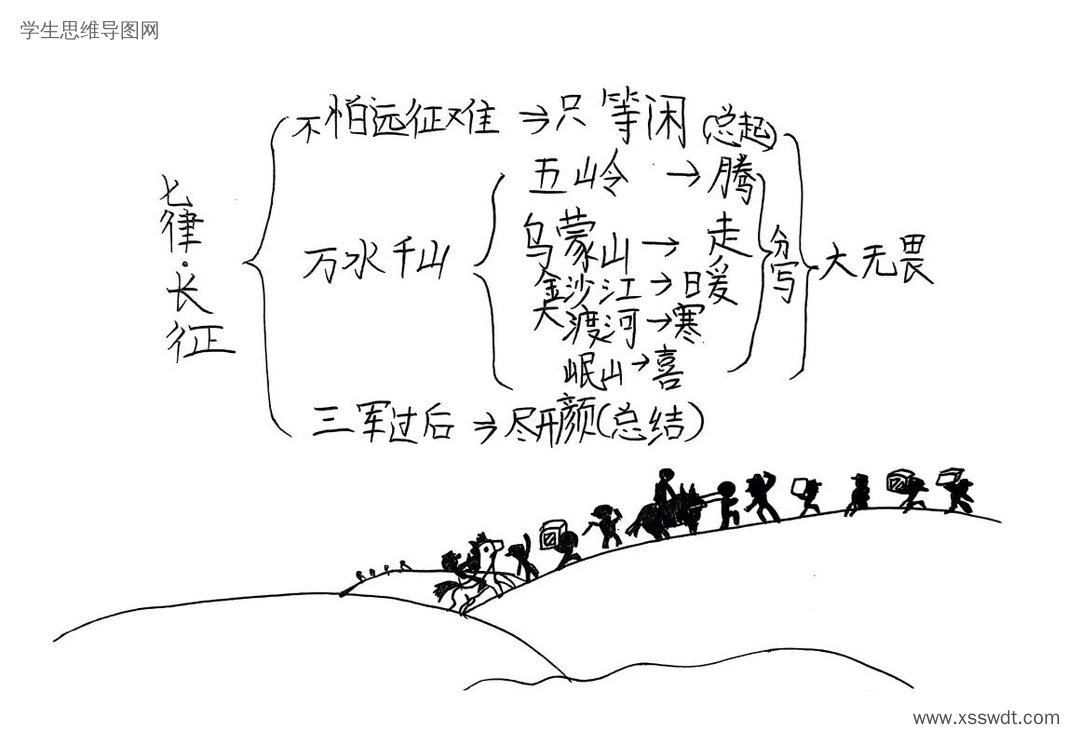 学生思维导图网
七律·长征
不怕远征难 ⇒ 只等闲(总起)
万水千山
五山岭 → 腾
乌蒙山 → 走
金沙江 → 暖
大渡河 → 寒
岷山 → 喜
分写
大无畏
三军过后 ⇒ 尽开颜(总结)
www.xsswdt.com